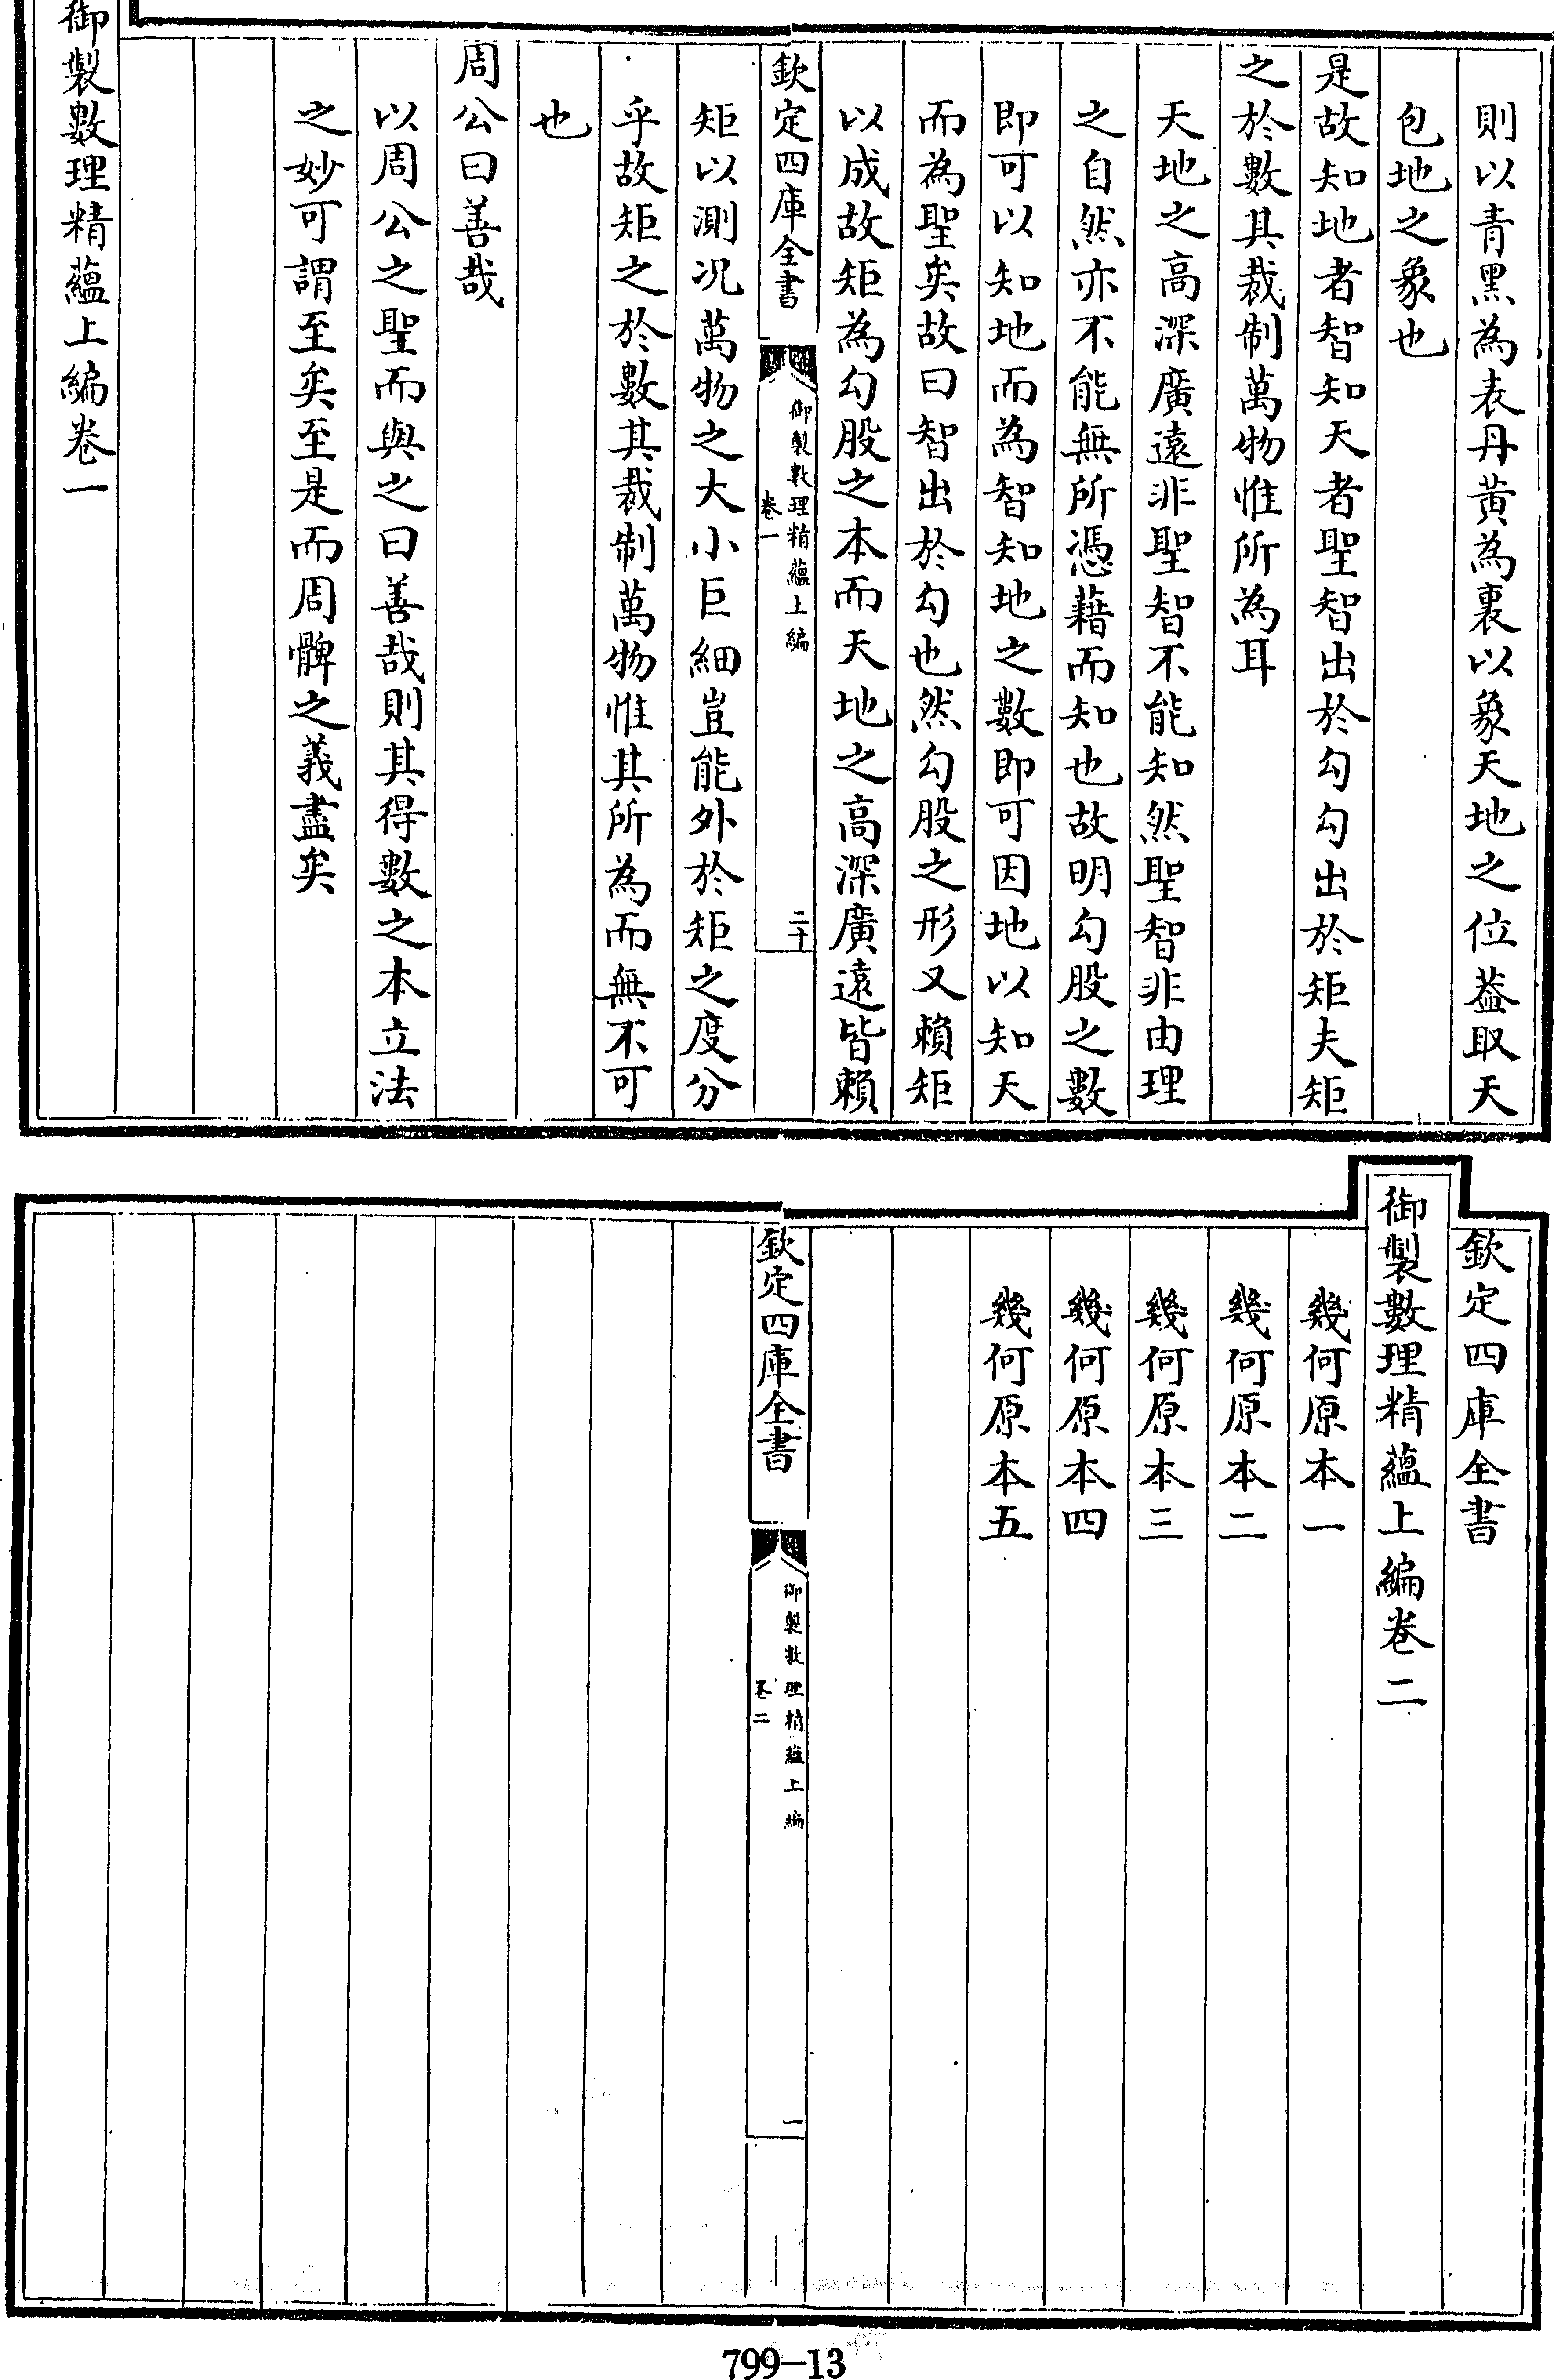 則以青黑為表丹黃為裏以象天地之位葢取天
包地之象也
是故知地者智知天者聖智出於勾勾出於矩夫矩
之於數其裁制萬物惟所為耳
天地之高深廣遠非聖智不能知然聖智非由理
之自然亦不能無所憑藉而知也故明勾股之數
即可以知地而為智知地之數即可因地以知天
而為聖矣故曰智出於勾也然勾股之形又賴矩
以成故矩為勾股之本而天地之高深廣遠皆賴
欽定四庫全書
御製數理精蘊上編
卷一
二十
矩以測况萬物之大小巨細豈能外於矩之度分
乎故矩之於數其裁制萬物惟其所為而無不可
也
周公曰善哉
以周公之聖而與之曰善哉則其得數之本立法
之妙可謂至矣至是而周髀之義盡矣
御製數理精蘊上編卷一
欽定四庫全書
御製數理精蘊上編卷二
幾何原本一
幾何原本二
幾何原本三
幾何原本四
幾何原本五
欽定四庫全書
御製數理精蘊上編
卷二
一
799-13